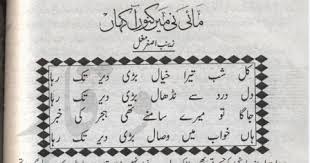 مائی نی میں کنوں آکھاں
زینب اصغر مغل
کل شب تیرا خیال بڑی دیر تک رہا
دل درد سے نڈھال بڑی دیر تک رہا
جاگا تو میرے سامنے تھی ہجر کی خبر
ہاں خواب میں وصال بڑی دیر تک رہا